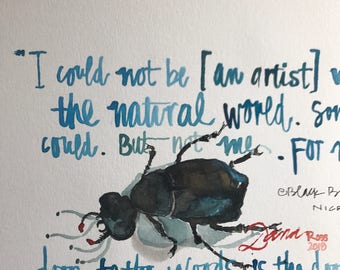 "I could not be [an artist] w
the natural world. Som
could. But not me. For m
@Black B
Nicr
Dana Ross
2018
door to the woods is the doo